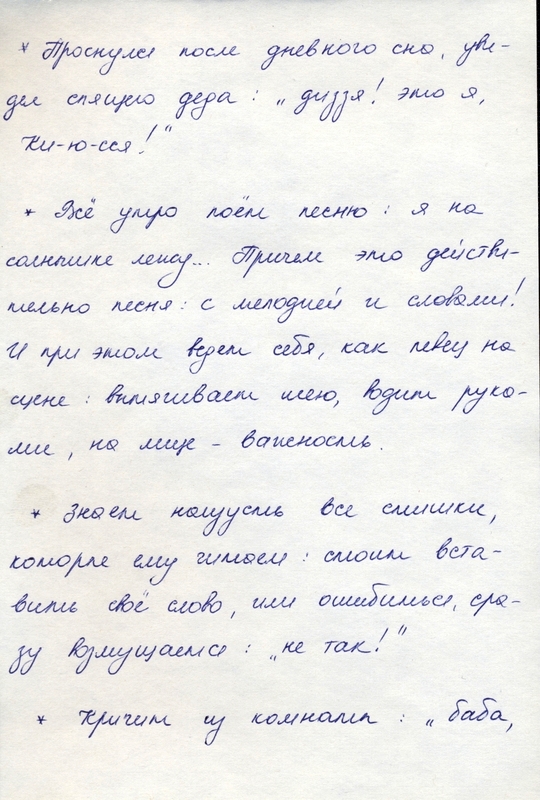 * Проснулся после дневного сна, уви-
дел спящего деда: „диззя! это я,
Ки-ю-сся!"
* Всё утро поём песню: я на
солнышке лежу... Причём это действи-
тельно песня: с мелодией и словами!
И при этом ведет себя, как певец на
сцене: вытягивает шею, водит рука-
ми, на лице - важность.
* Знает наизусть все стишки,
которые ему читаем: стоит вста-
вить своё слово, или ошибиться, сра-
зу возмущается: „не так!"
* Кричит из комнаты: „баба,